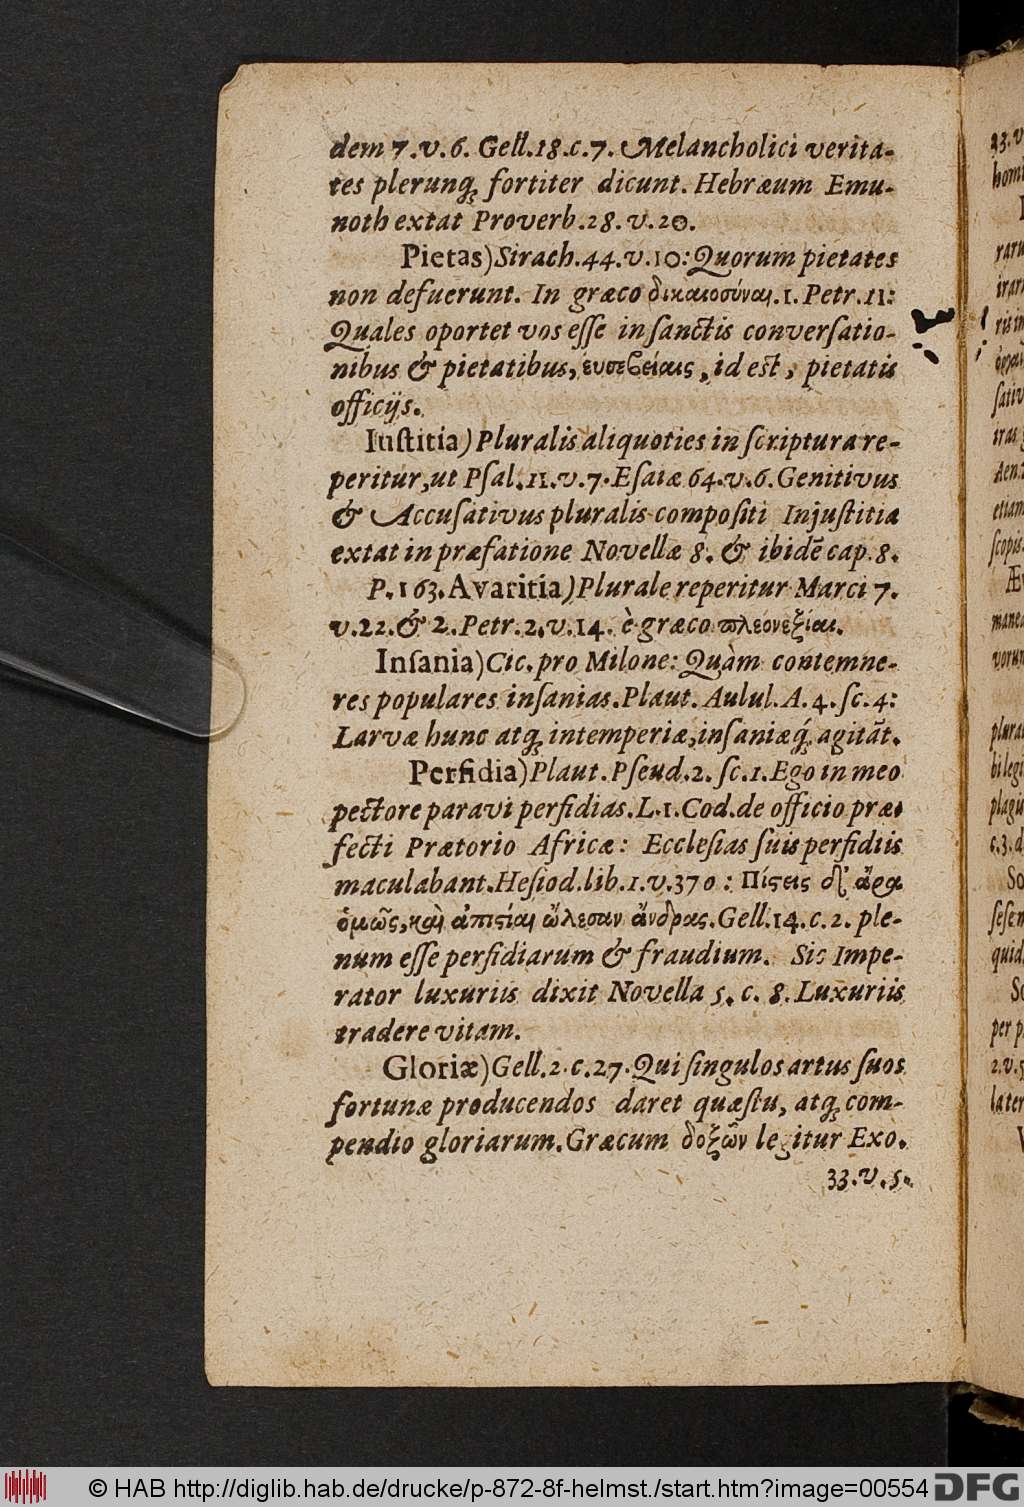 dem 7.v.6. Gell.18.c.7. Melancholici verita-
tes plerunq; fortiter dicunt. Hebræum Emu-
noth extat Proverb.28.v.20.
Pietas) Sirach.44.v.10: Quorum pietates
non defuerunt. In græco δικαιοσύναι.1.Petr.11:
Quales oportet vos eſſe in ſanctis converſatio-
nibus & pietatibus, ἐυσεβείαις, id est, pietatis
officijs.
Iuſtitia) Pluralis aliquoties in ſcriptura re-
peritur, ut Pſal.11.v.7. Eſaiæ 64.v.6. Genitivus
& Accuſativus pluralis compoſiti Injuſtitia
extat in præfatione Novellæ 8. & ibidē cap.8.
P.163. Avaritia) Plurale reperitur Marci 7.
v.22. & 2. Petr.2.v.14. è græco πλεονεξίαι.
Inſania) Cic. pro Milone: Quàm contemne-
res populares inſanias. Plaut. Aulul. A.4.ſc.4:
Larvæ hunc atq; intemperiæ, inſaniæq́; agitāt.
Perfidia) Plaut. Pſeud.2.ſc.1. Ego in meo
pectore paravi perfidias. L.1. Cod. de officio præ-
fecti Prætorio Africæ: Eccleſias ſuis perfidiis
maculabant. Heſiod. lib.1.v.370: Πίστεις δ' ἄρα
ὁμῶς, καὶ ἀπιστίαι ὤλεσαν ἄνδρας. Gell.14.c.2. ple-
num eſſe perfidiarum & fraudium. Sic Impe-
rator luxuriis dixit Novella 5. c. 8. Luxuriis
tradere vitam.
Gloriæ) Gell.2.c.27. Qui ſingulos artus ſuos
fortunæ producendos daret quæſtu, atq; com-
pendio gloriarum. Græcum δοξῶν legitur Exo.
33.v.5.
© HAB http://diglib.hab.de/drucke/p-872-8f-helmst./start.htm?image=00554 DFG